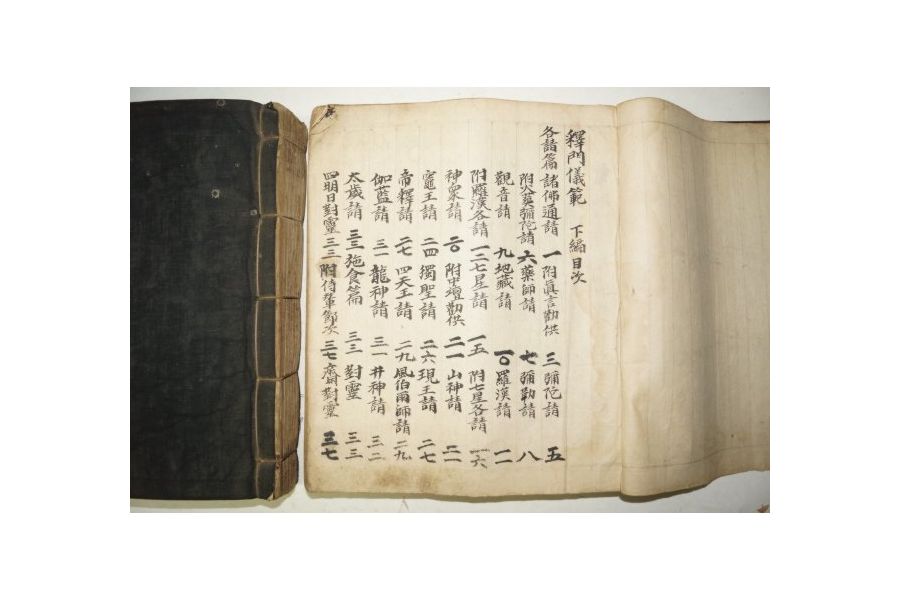 釋門儀範 下編目次
各請篇 諸佛通請 一 附眞言勸供 三 彌陀請 五
附火葬彌陀請 六 藥師請 七 彌勒請 八
觀音請 九 地藏請 一〇 羅漢請 一一
附羅漢各請 一三 七星請 一五 附七星各請 一六
神衆請 二〇 附中壇勸供 二一 山神請 二一
竈王請 二四 獨聖請 二六 現王請 二七
帝釋請 二七 四天王請 二九 風伯雨師請 二九
伽藍請 三一 龍神請 三一 井神請 三二
太歲請 三三 施食篇 三三 對靈 三三
四明日對靈 三三 附侍輦節次 三七 齋對靈 三七